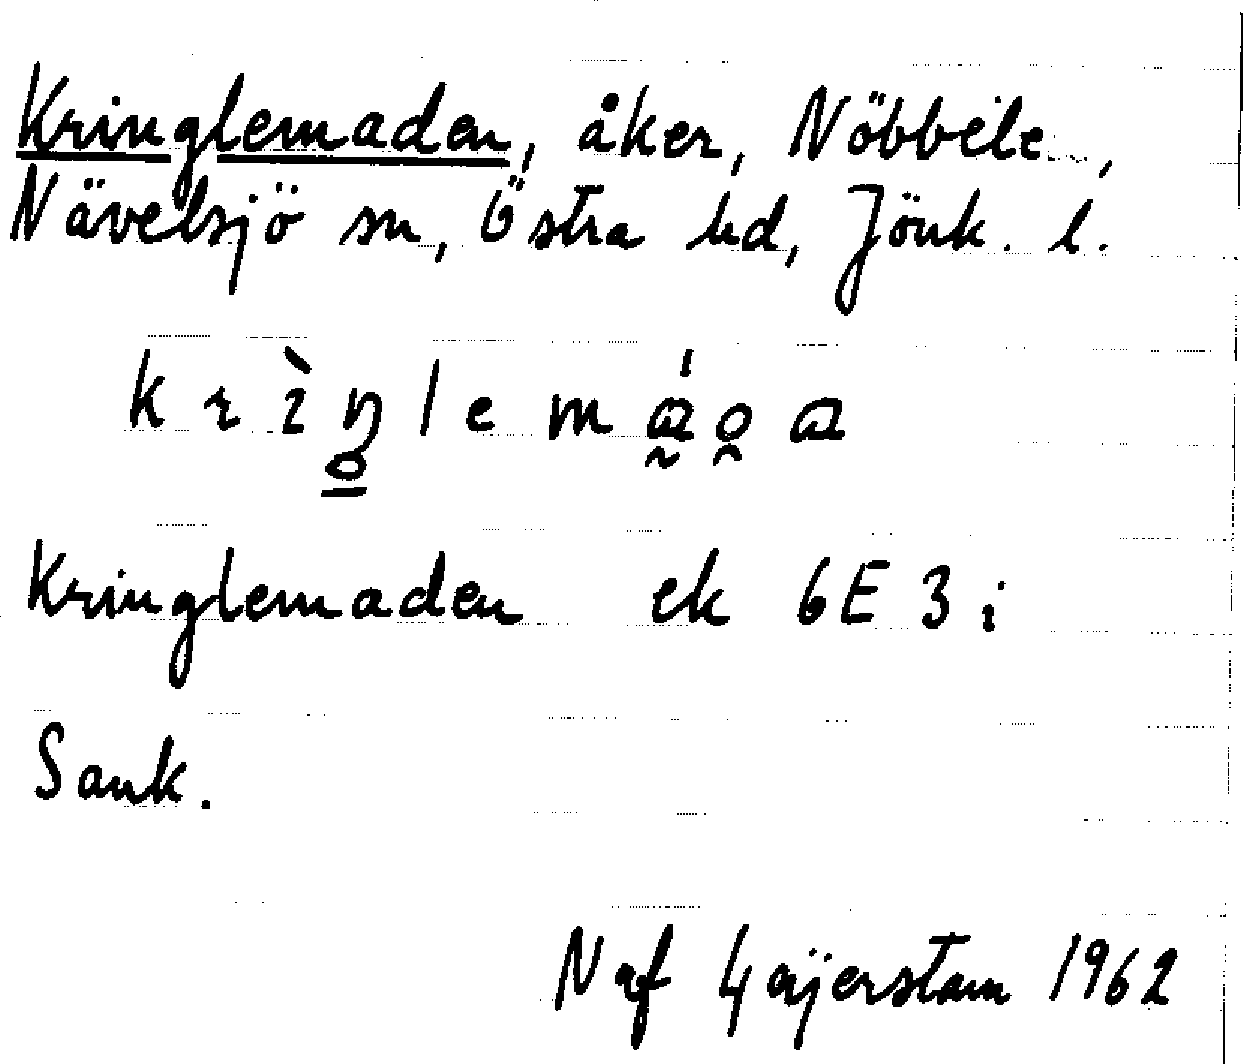 Kringlemaden, åker, Nöbbele,
Nävelsjö sn, Östra hd, Jönk. l.
Kringlemaden ek 6E 3 i
Sank.
N af Geijerstam 1962